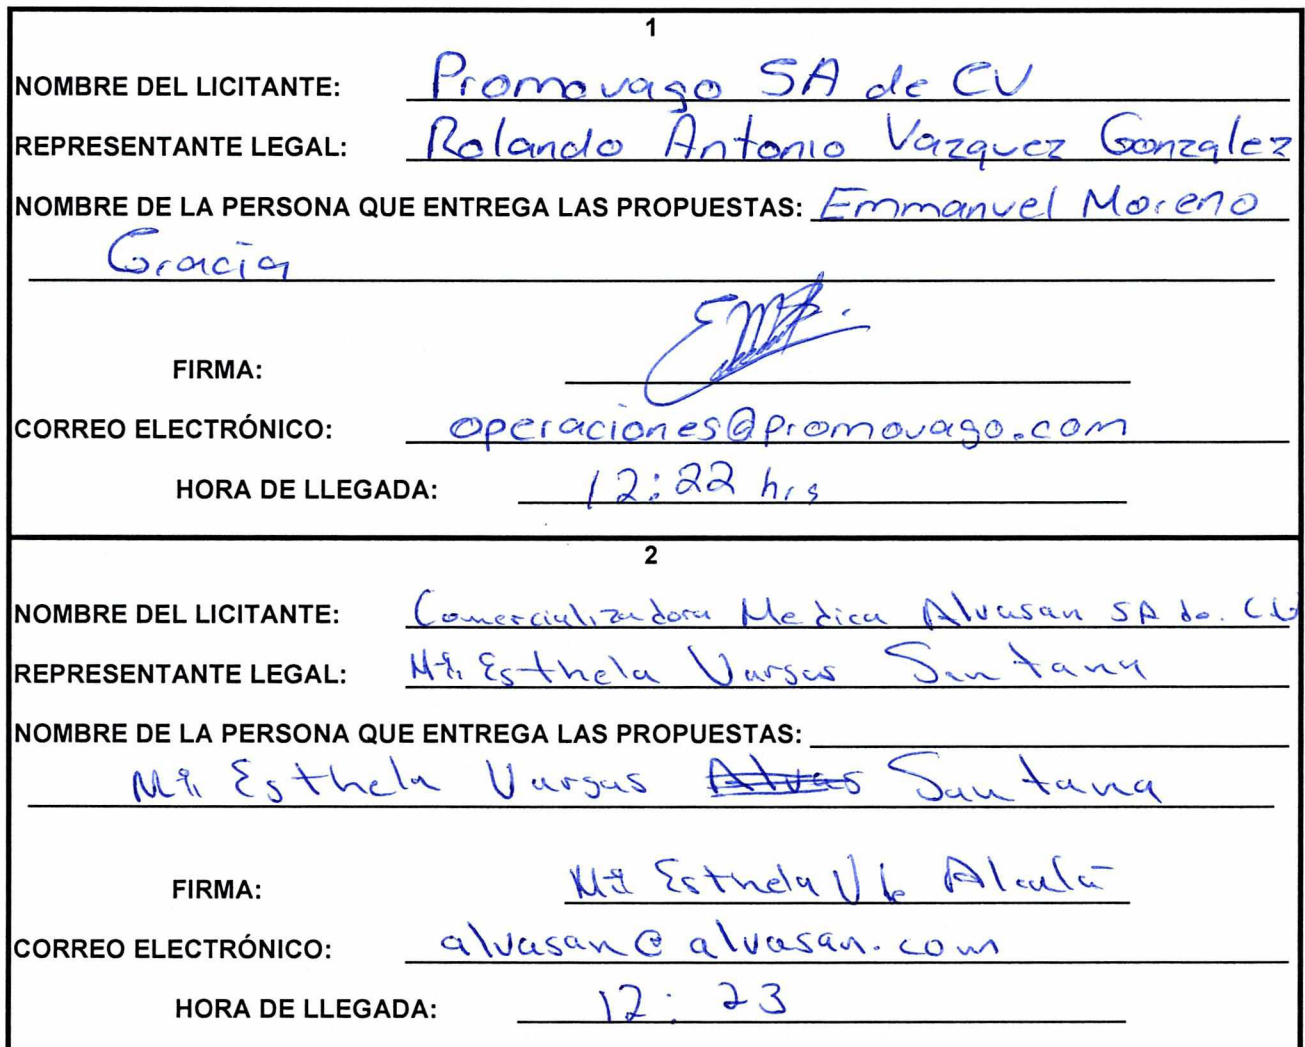 1
NOMBRE DEL LICITANTE: Promovago SA de CV
REPRESENTANTE LEGAL: Rolando Antonio Vazquez Gonzalez
NOMBRE DE LA PERSONA QUE ENTREGA LAS PROPUESTAS: Emmanuel Moreno
Gracia
FIRMA:
CORREO ELECTRÓNICO: operaciones@promovago.com
HORA DE LLEGADA: 12:22 hrs
2
NOMBRE DEL LICITANTE: Comercializadora Medica Alvasan SA de. CV
REPRESENTANTE LEGAL: Ma. Esthela Vargas Santana
NOMBRE DE LA PERSONA QUE ENTREGA LAS PROPUESTAS:
Ma. Esthela Vargas Santana
FIRMA: Ma Esthela V de Alcalá
CORREO ELECTRÓNICO: alvasan@alvasan.com
HORA DE LLEGADA: 12:23